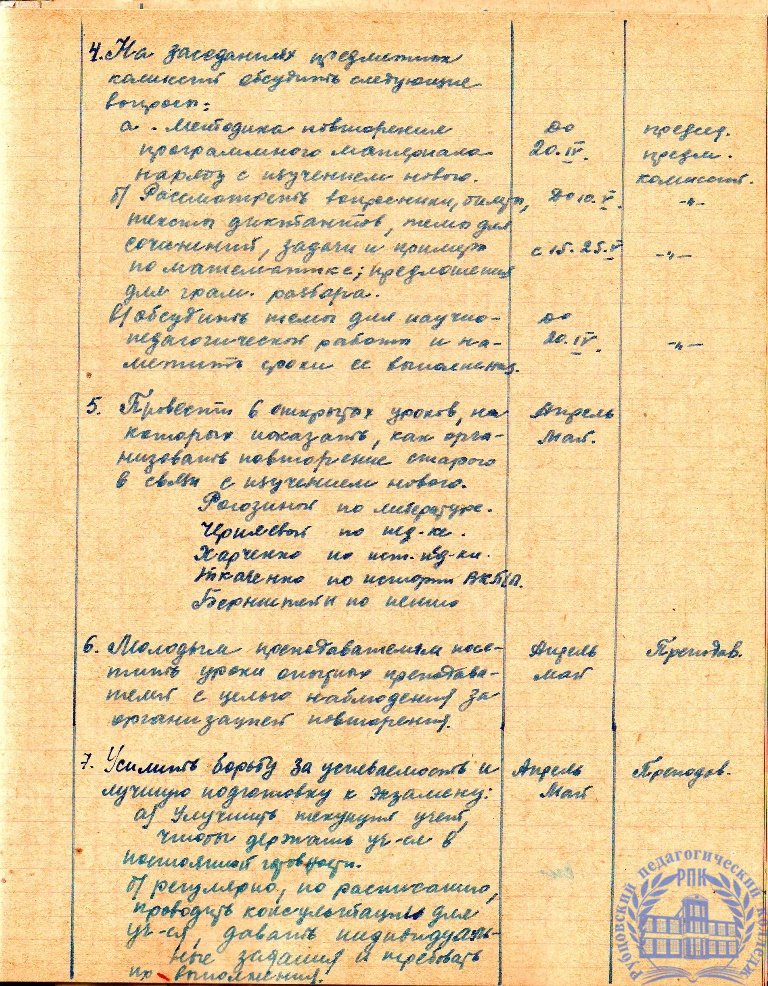 4. На заседаниях предметных
комиссий обсудить следующие
вопросы:
а. Методика повторения До председ.
программного материала 20.IV. предм.
наряду с изучением нового. комиссий.
б) Рассмотреть вопросники, билеты, До 10.V. -„-
тексты диктантов, темы для
сочинений, задачи и примеры с 15-25.V -„-
по математике; предложения
для грам. разбора.
в) Обсудить темы для научно- До
педагогической работы и на- 20.IV. -„-
метить сроки ее выполнения.
5. Провести 6 открытых уроков, на Апрель
которых показать, как орга- Май.
низовать повторение старого
в связи с изучением нового.
Рогозиной по литературе.
по пед-ке.
Харченко по ист. пед-ки.
Ткаченко по истории ВКП/б.
Бернштейн по пению
6. Молодым преподавателям посе- Апрель Преподав.
тить уроки опытных преподава- Май
телей с целью наблюдения за
организацией повторения.
7. Усилить борьбу за успеваемость и Апрель Преподов.
лучшую подготовку к экзамену: Май
а) Улучшить текущий учет,
чтобы держать уч-ся в
постоянной готовности.
б) регулярно, по расписанию,
проводить консультации для
уч-ся, давать индивидуаль-
ные задания и требовать
их выполнения.
Рубцовский педагогический колледж
РПК